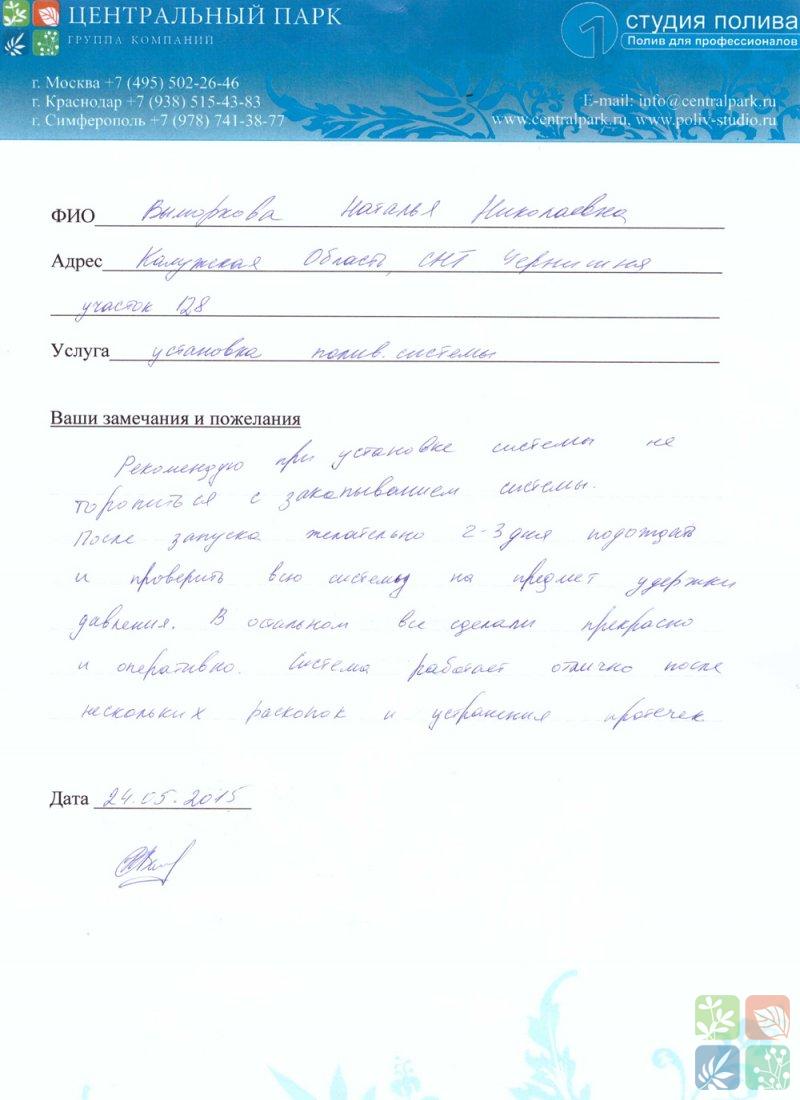 ЦЕНТРАЛЬНЫЙ ПАРК
ГРУППА КОМПАНИЙ
1 студия полива
Полив для профессионалов
г. Москва +7 (495) 502-26-46
г. Краснодар +7 (938) 515-43-83
г. Симферополь +7 (978) 741-38-77
E-mail: info@centralpark.ru
www.centralpark.ru, www.poliv-studio.ru
ФИО Выморкова Наталья Николаевна
Адрес Калужская Область, СНТ Чернишня
участок 128
Услуга установка полив. системы
Ваши замечания и пожелания
Рекомендую при установке системы не
торопиться с закапыванием системы.
После запуска желательно 2-3 дня подождать
и проверить всю систему на предмет удержки
давления. В остальном все сделали прекрасно
и оперативно. Система работает отлично после
нескольких раскопок и устранения протечек
Дата 24.05.2015